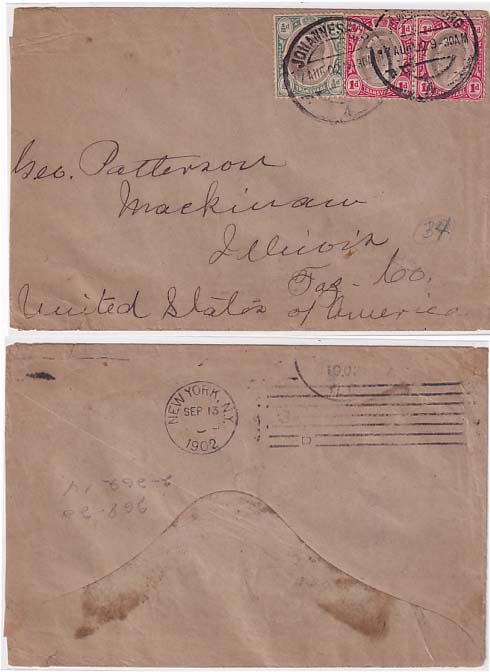 JOHANNESBURG
AUG 02 9-30AM
½d ½d
TRANSVAAL
1d 1d
TRANSVAAL
1d 1d
Geo. Patterson
Mackinaw
Illinois
34
Taz- Co.
United States of America
NEW YORK, N.Y.
SEP 13
1902